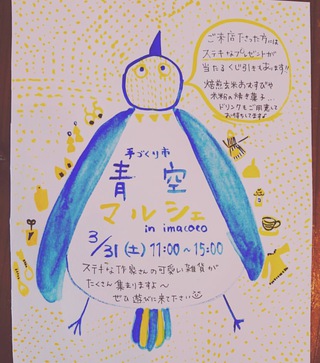 ご来店下さった方には
ステキなプレゼントが
当たるくじ引きもあります!!
焙煎玄米おむすびや
米粉の焼き菓子…
ドリンクもご用意して
お待ちしてますよ
手づくり市
青空
マルシェ
in imacoco
3/31(土) 11:00~15:00
ステキな作家さんの可愛い雑貨が
たくさん集まりますよ〜
ぜひ遊びに来て下さい